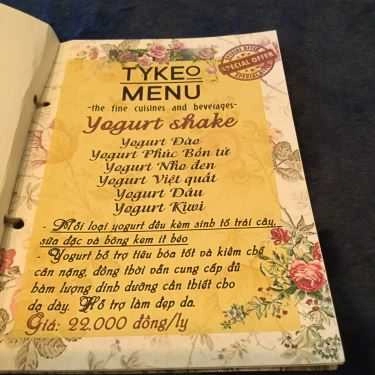 TYKEO
MENU
SPECIAL OFFER
-the fine cuisines and beverages-
Yogurt shake
Yogurt Đào
Yogurt Phúc Bồn tử
Yogurt Nho đen
Yogurt Việt quất
Yogurt Dâu
Yogurt Kiwi
- Mỗi loại yogurt đều kèm sinh tố trái cây,
sữa đặc và bông kem ít béo
- Yogurt hỗ trợ tiêu hóa tốt và kiềm chế
cân nặng, đồng thời vẫn cung cấp đủ
hàm lượng dinh dưỡng cần thiết cho
dạ dày. Hỗ trợ làm đẹp da.
Giá: 22.000 đồng/ly